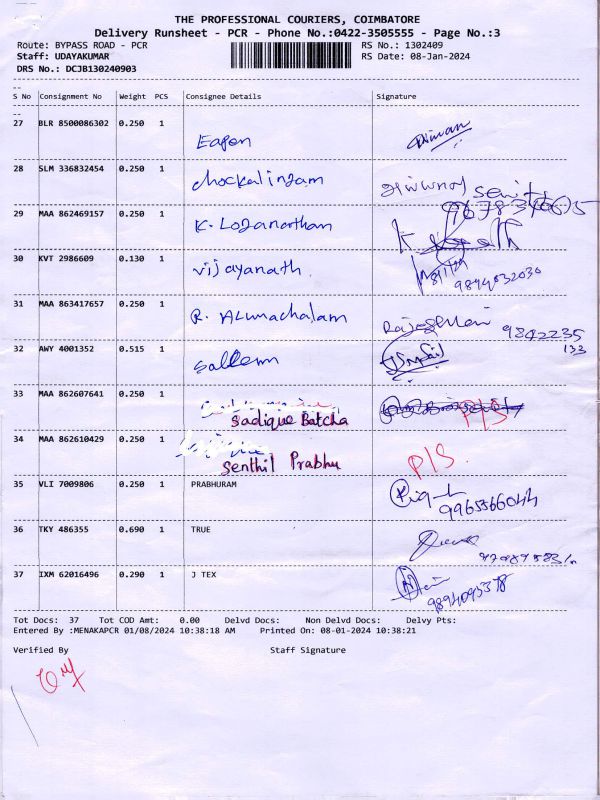 THE PROFESSIONAL COURIERS, COIMBATORE
Delivery Runsheet - PCR - Phone No.:0422-3505555 - Page No.:3
Route: BYPASS ROAD - PCR RS No.: 1302409
Staff: UDAYAKUMAR RS Date: 08-Jan-2024
DRS No.: DCJB130240903
S No Consignment No Weight PCS Consignee Details Signature
27 BLR 8500086302 0.250 1 Eapen
28 SLM 336832454 0.250 1 chockalingam
29 MAA 862469157 0.250 1 K. Loganantham
30 KVT 2986609 0.130 1 vijayanath 9844032030
31 MAA 863417657 0.250 1 R. Alumachalam 9842235
133
32 AWY 4001352 0.515 1
33 MAA 862607641 0.250 1 Sadique Batcha P/S
34 MAA 862610429 0.250 1 Senthil Prabhu P/S.
35 VLI 7009806 0.250 1 PRABHURAM 9965566044
36 TKY 486355 0.690 1 TRUE
37 IXM 62016496 0.290 1 J TEX 9894095378
Tot Docs: 37 Tot COD Amt: 0.00 Delvd Docs: Non Delvd Docs: Delvy Pts:
Entered By :MENAKAPCR 01/08/2024 10:38:18 AM Printed On: 08-01-2024 10:38:21
Verified By Staff Signature